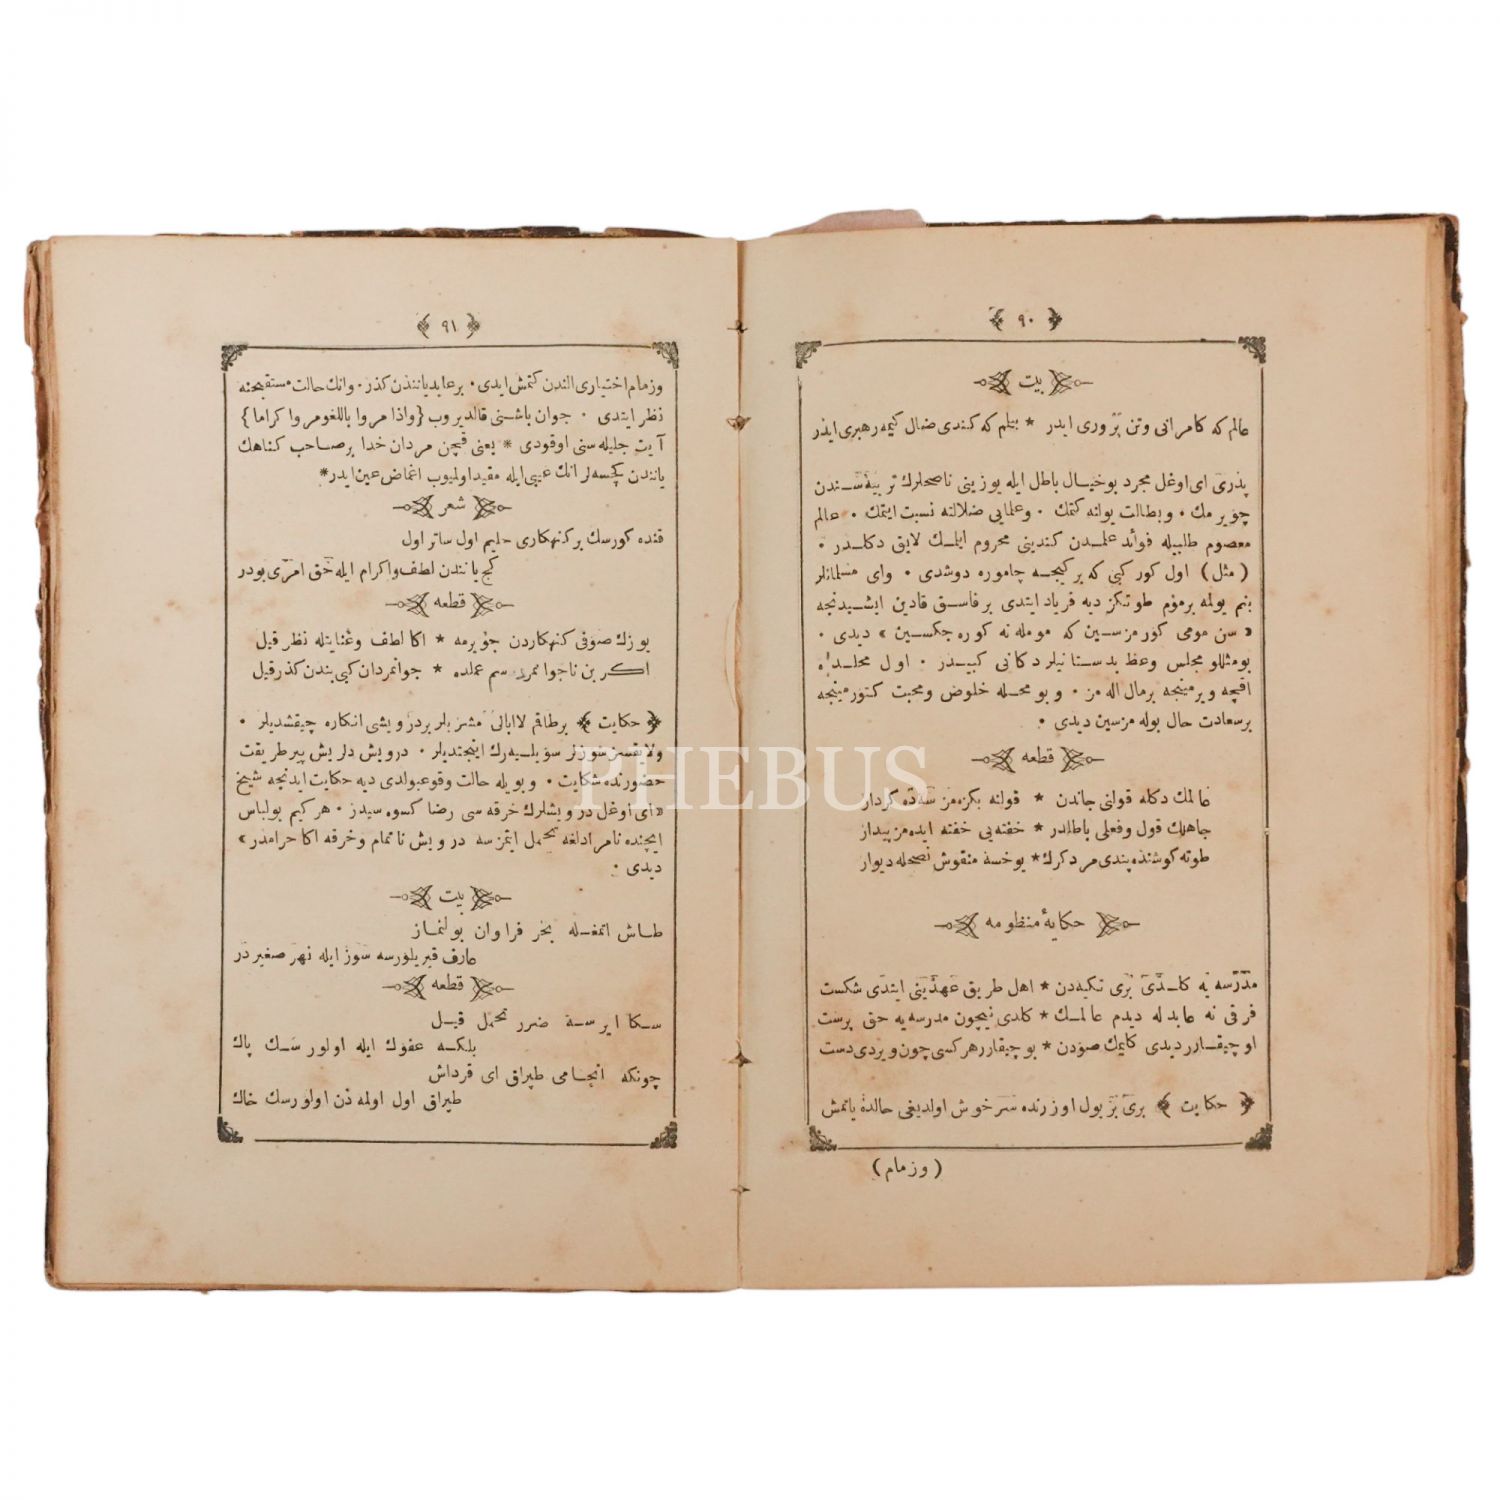 ﴿ ٩٠ ﴾
بيت
عالم كه كامرانى وتن پرورى ايدر * بتلم كه كندى ضال كيمه رهبرى ايدر
پدرى اى اوغل مجرد بوخيال باطل ايله يوزينى ناصحلرك تربيه سندن
چويرمك ٠ وبطالت يولنه كتمك ٠ وعلمايى ضلالته نسبت ايتمك ٠ عالم
معصوم طلبيله فوائد علمدن كندينى محروم ايلمك لايق دكلدر ٠
( مثل ) اول كور كبى كه بر كيجه چاموره دوشدى ٠ واى مسلمانلر
بنم يولمه برموم طوتكز ديه فرياد ايتدى بر فاسق قادين ايشيدنجه
« سن مومى كورمزسين كه مومله نه كوره جكسين » ديدى ٠
بومثللو مجلس وعظ بدستانيلر دكانى كبيدر ٠ اول محلده
اقچه ويرمينجه برمال اله مز ٠ وبو محله خلوص ومحبت كتورمينجه
برسعادت حال بوله مزسين ديدى ٠
قطعه
عالمك دكله قولنى جاندن * قولنه بكزه مز سه ده كردار
جاهلك قول وفعلى باطلدر * خفته يى خفته ايده مز بيدار
طوته كوشنده پندى مرد كرك * يوخسه منقوش نصحله ديوار
حكايۀ منظومه
مدرسه يه كلدى برى تكيه دن * اهل طريق عهدينى ايتدى شكست
فرقى نه عابدله ديدم عالمك * كلدى نيچون مدرسه يه حق پرست
او چيقارر ديدى كليمك صودن * بو چيقارر هركسى چون ويردى دست
﴿ حكايت ﴾ برى بر يول اوزرنده سرخوش اولديغى حالده ياتمش
( وزمام )
﴿ ٩١ ﴾
وزمام اختيارى الندن كتمش ايدى ٠ بر عابد ياننذن كذر ٠ وانك حالت مستقبحنه
نظر ايتدى ٠ جوان باشنى قالديروب {واذا مروا باللغو مروا كراما}
آيت جليله سنى اوقودى * يعنى قچن مردان خدا بر صاحب كناهك
ياننذن كچسه لر انك عيبى ايله مقيد اولميوب اغماض عين ايدر *
شعر
قنده كورسك بر كنهكارى حليم اول ساتر اول
كچ ياننذن لطف واكرام ايله حق امرى بودر
قطعه
يوزك صوفى كنهكاردن چويرمه * اكا لطف وعنايتله نظر قيل
اكر بن ناجوانمرد سم عملده * جوانمردان كبى بندن كذر قيل
﴿ حكايت ﴾ برطاقم لاابالى مشربلر بر درويشى انكاره چيقشديلر ٠
ولايقسز سوزلر سويليه رك اينجتديلر ٠ درويش دلريش پير طريقت
حضورنده شكايت ٠ وبويله حالت وقوعبولدى ديه حكايت ايدنجه شيخ
« اى اوغل درويشلرك خرقه سى رضا كسوه سيدر ٠ هركيم بولباس
ايچنده نامرادلغه تحمل ايتمز سه درويش ناتمام وخرقه اكا حرامدر »
ديدى ٠
بيت
طاش اتمغله بحر فراوان بولنماز
عارف قيريلورسه سوز ايله نهر صغيردر
قطعه
سكا ايرسه ضرر تحمل قيل
بلكه عفوك ايله اولورسك پاك
چونكه انجامى طپراق اى قرداش
طپراق اول اولمه دن اولورسك خاك
PHEBUS